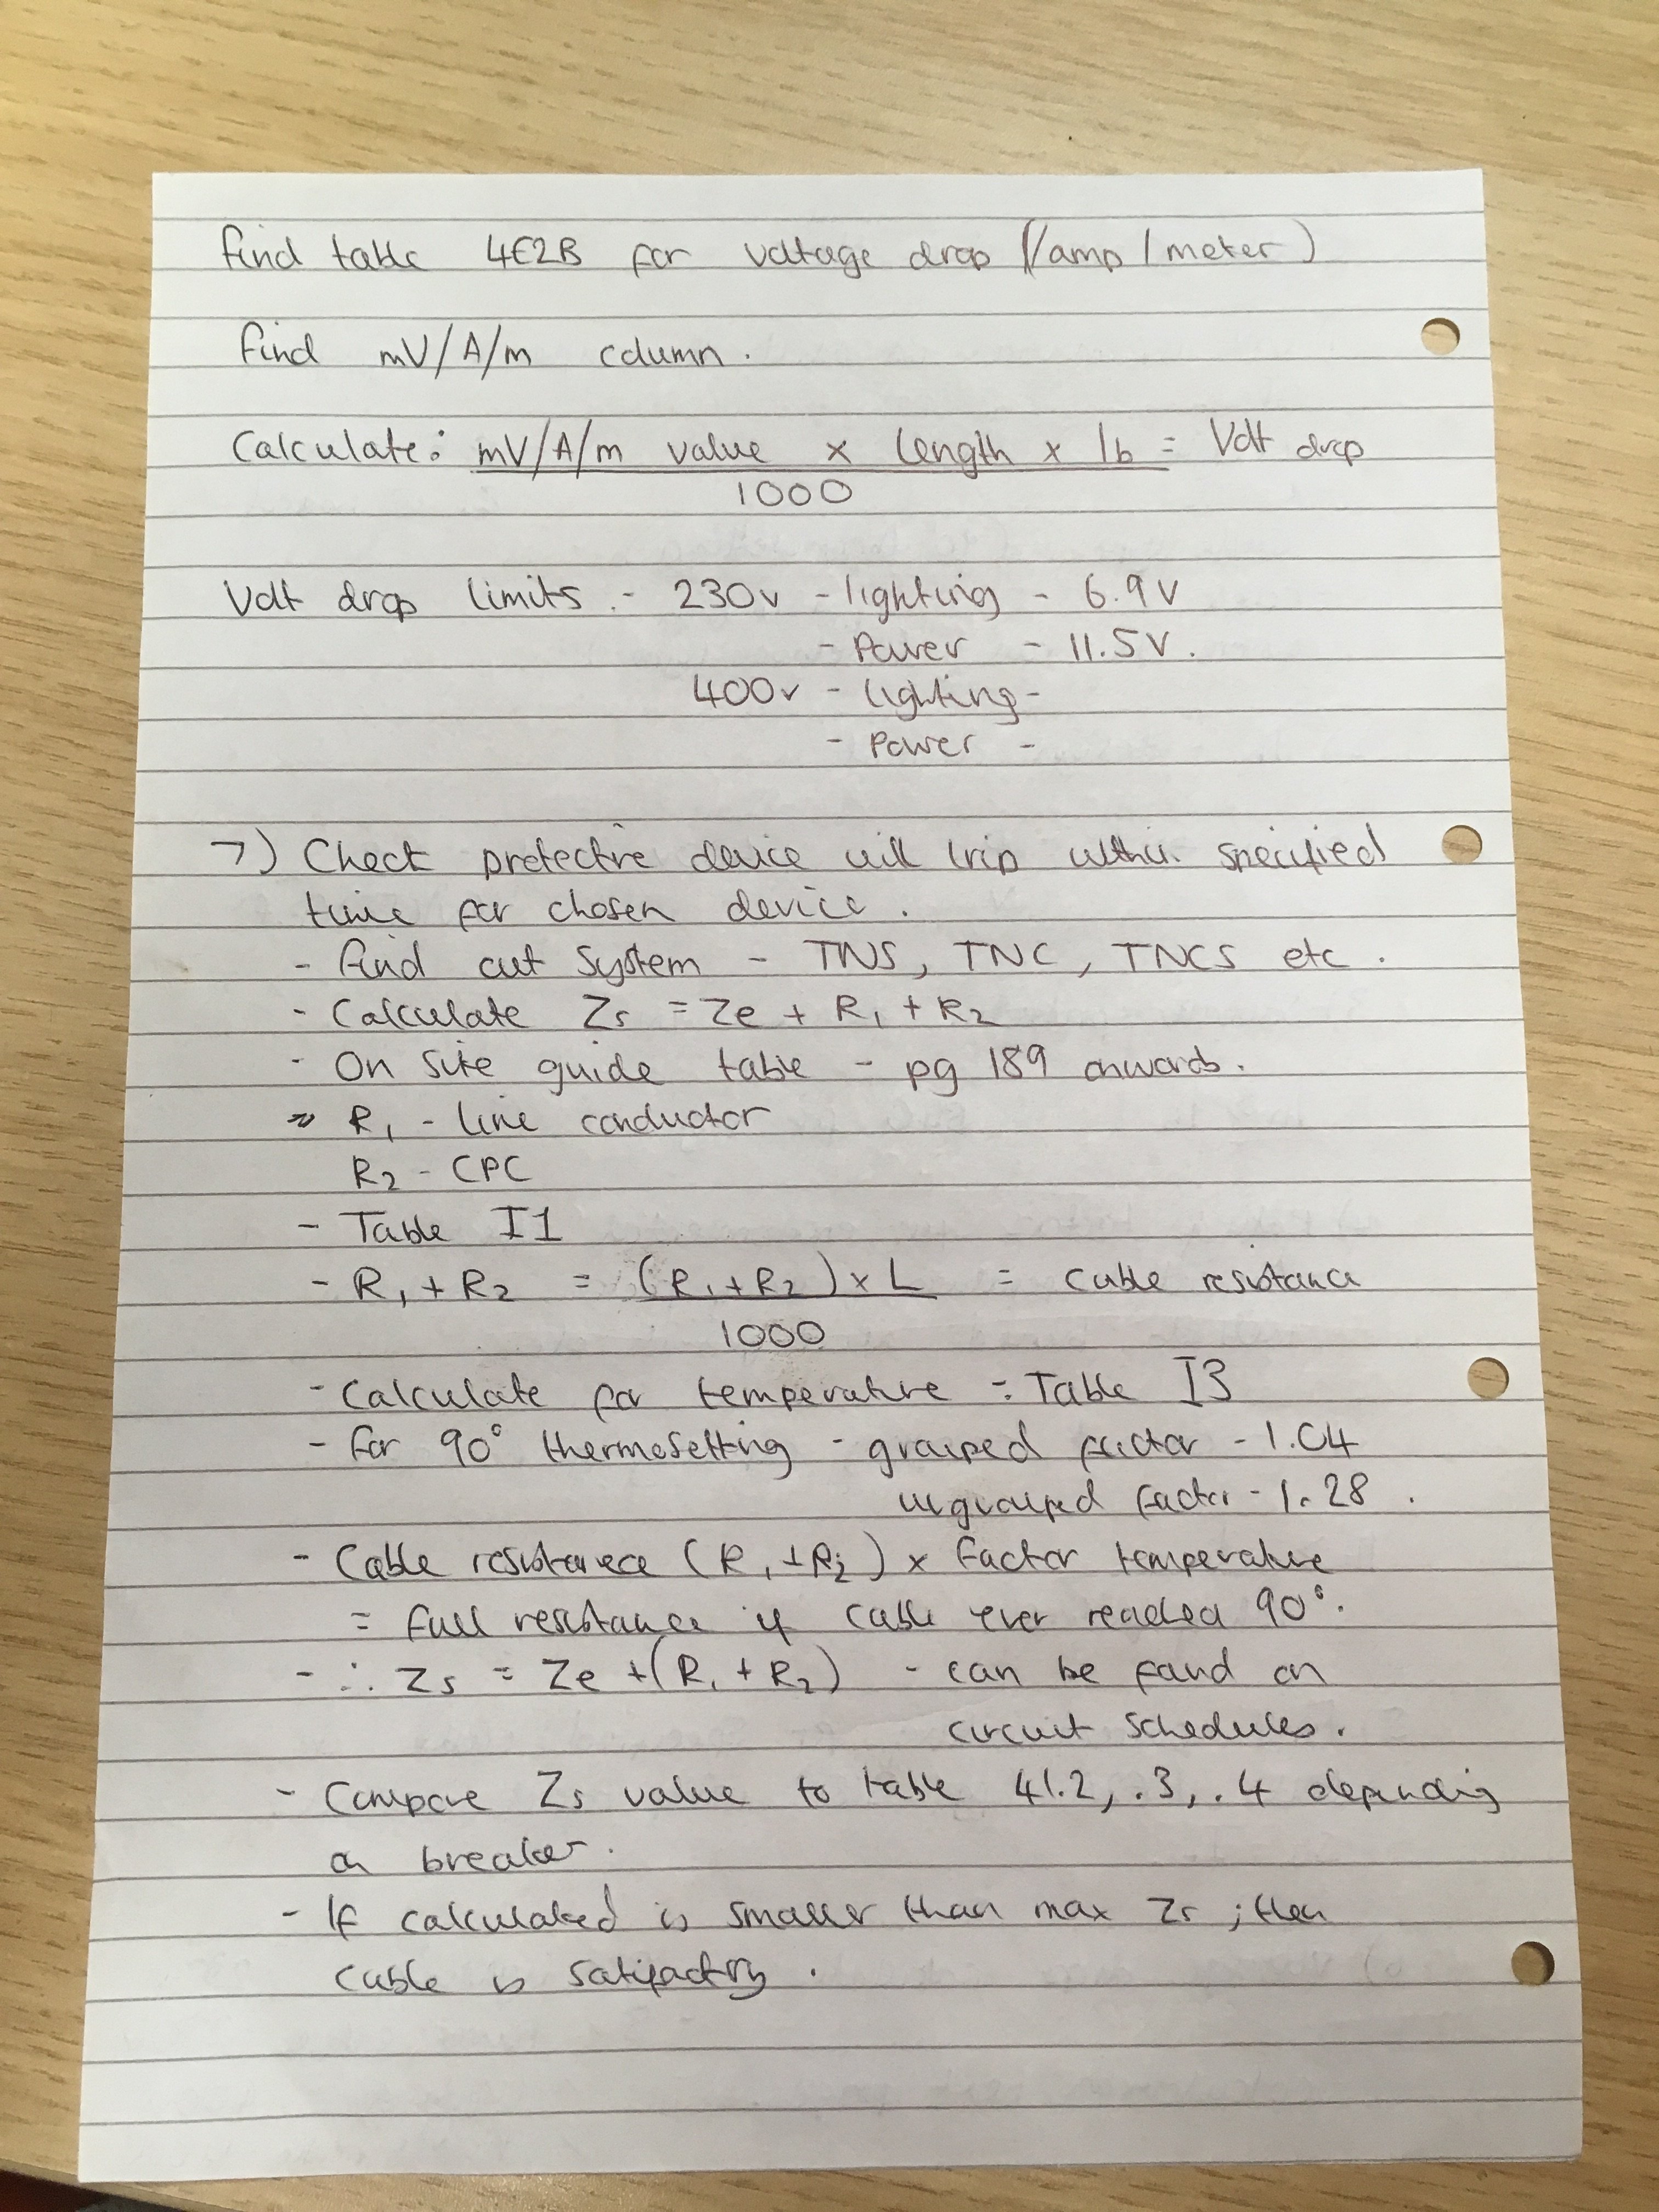 find table 4E2B for voltage drop (/amp/meter)
find mV/A/m column.
Calculate: mV/A/m value x length x Ib = Volt drop
1000
Volt drop limits :- 230v - lighting - 6.9V
- Power - 11.5V.
400v - lighting -
- Power -
7) Check protective device will trip within specified
time for chosen device.
- find out system - TNS, TNC, TNCS etc.
- Calculate Zs = Ze + R1 + R2
- On site guide table - pg 189 onwards.
R1 - line conductor
R2 - CPC
- Table I1
- R1 + R2 = (R1 + R2) x L = cable resistance
1000
- Calculate for temperature - Table I3
- for 90° thermosetting - grouped factor - 1.04
ungrouped factor - 1.28.
- Cable resistance (R1 + R2) x factor temperature
= full resistance if cable ever reached 90°.
- ∴ Zs = Ze + (R1 + R2) - can be found on
circuit schedules.
- Compare Zs value to table 41.2, .3, .4 depending
on breaker.
- If calculated is smaller than max Zs ; then
cable is satifactory.